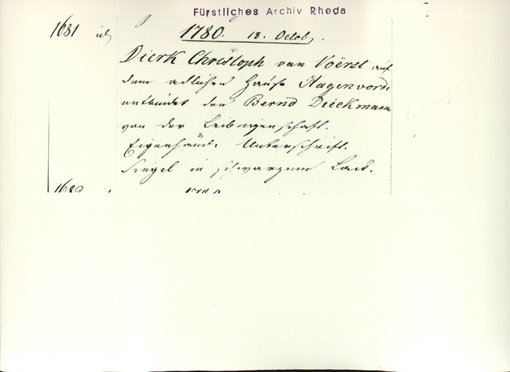 Fürstliches Archiv Rheda
1681 1780. 18. Octob.
Dierk Christoph van Voërst auf
dem adlichen Hause Hagenvorde
entbindet den Bernd Dieckmann
von der Leibeigenschaft.
Eigenhänd. Unterschrift.
Siegel in schwarzem Lack.